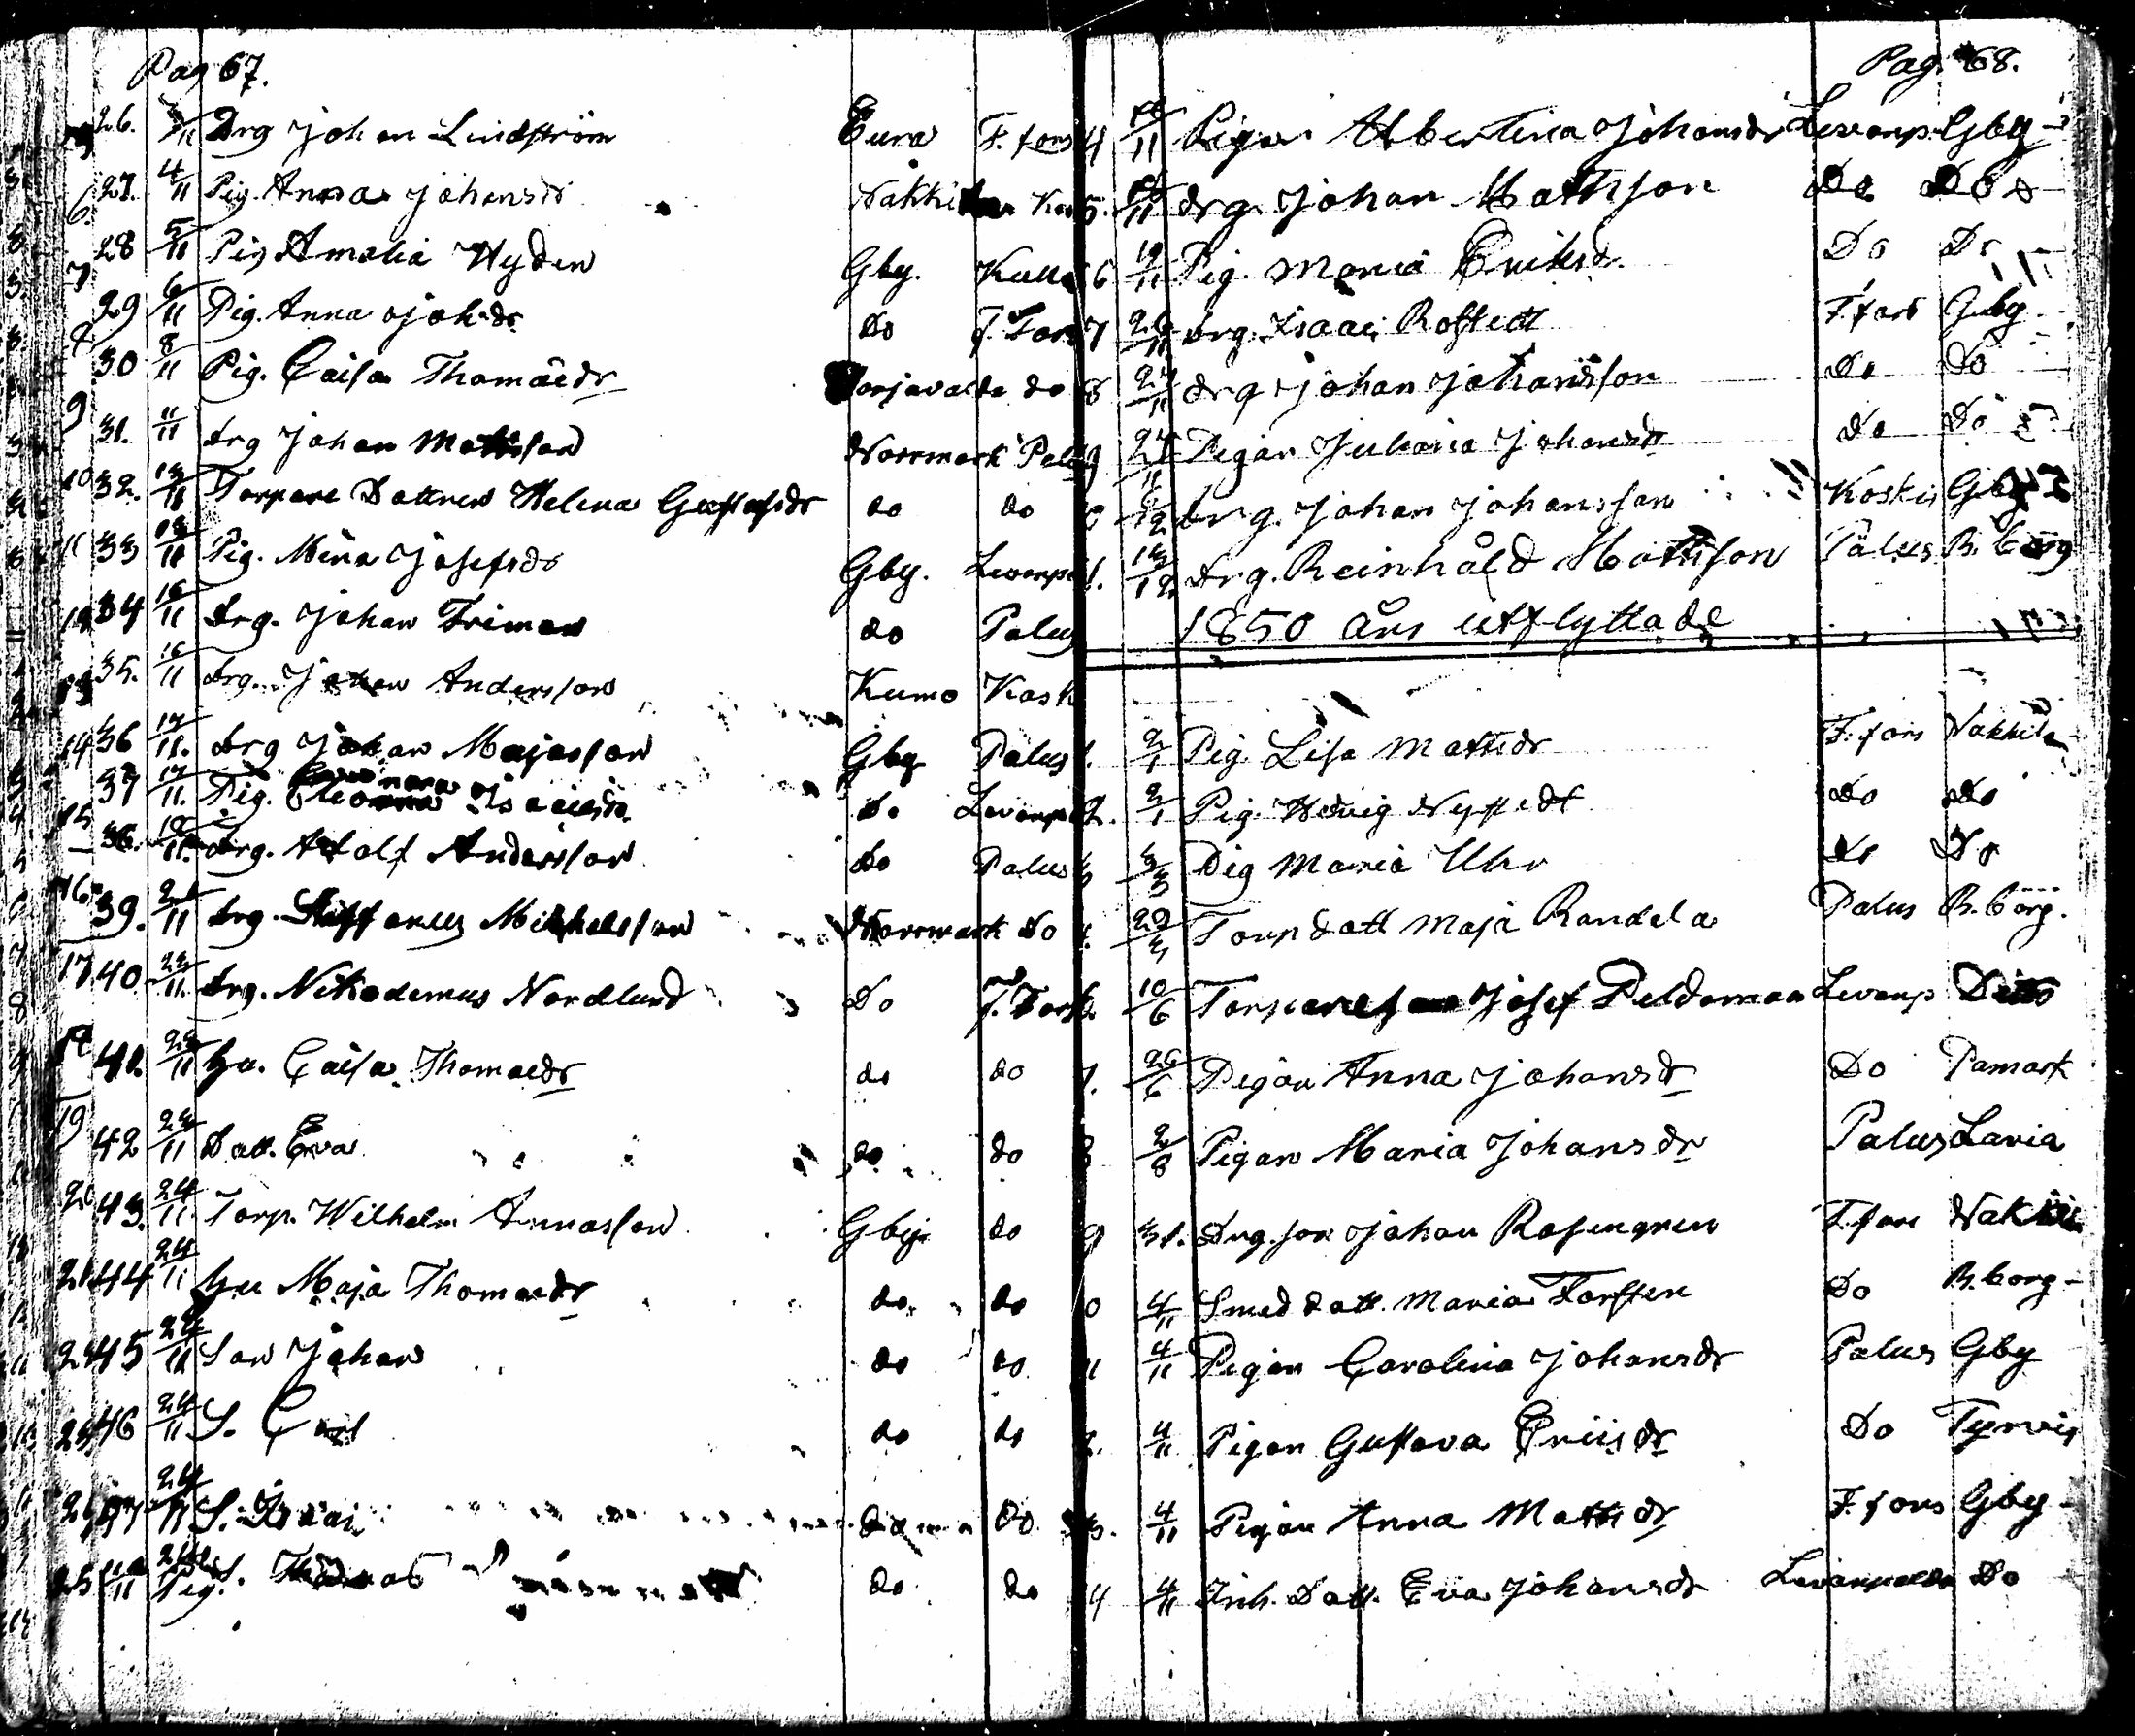 Pag 67.
26. 3/11 Drg Johan Lindström Eura F. fors
6 27. 4/11 Pig. Anna Johansdr Nakkila
7 28 5/11 Pig Amalia Hyden Gby. Kulla
29 6/11 Pig. Anna Johdr Do F. Fors
30 8/11 Pig. Caisa Thomaedr do
9 31. 11/11 drg Johan Mattsson Norrmark Palus
10 32. 13/11 Torpare Dottren Helena Gustafsdr do do
11 33 13/11 Pig. Mina Josefsdr Gby. Levanp
34 16/11 drg. Johan Friman do Palus
35. 16/11 drg. Johan Andersson Kumo Kask
14 36 17/11. drg Johan Majasson Gby Palus
15 37 17/11. Pig. Isacsdr Do Levanp
38. drg. Adolf Andersson Do Palus
16 39. 21/11 drg. Michelsson Norrmark Do
17 40 22/11. drg. Nikodemus Nordlund Do F. Fors
41. 22/11 hu. Caisa Thomaedr do do
19 42 22/11 Dott. Eva do do
20 43. 24/11. Torp. Wilhelm Annasson Gby. do
21 44 24/11 hu Maja Thomaedr do do
45 24/11 Son Johan do do
46 24/11 S. Carl do do
47 24/11 S. Isaac do do
25 S. Thomas do do
Pag. 68.
4 Pigan Albertina Johansdr Levanp Gby
5. drg. Johan Mattsson Do Do
6 19/11 Pig. Maria Eriksdr Do Do
7 26/11 drg. Isaac Rostedt F. fors Gby
8 27/11 drg Johan Johansson Do Do
9 27/11 Pigan Juliana Johansdr Do Do
0 6/12 drg. Johan Johansson Koskis Gby
1. 13/12 drg. Reinhåld Mattsson Palus B. borg
1850 års utflyttade
1. 2/1 Pig. Lisa Mattsdr F. fors Nakkila
2. 2/1 Pig. Hedvig Nystedt Do Do
3 3/3 Pig Maria Uhr Do Do
4. 22/3 Torp dott Maja Randela Palus B. borg.
10/6 Torparesson Josef Peldoman Levanp Ditto
7. 26/6 Pigan Anna Johansdr Do Pamark
8 2/8 Pigan Maria Johansdr Palus Lavia
9 31. Drg. son Johan Rosengren F. fors Nakkila
0 4/11 Smed dott. Maria Forsten Do B. borg
11 4/11 Pigan Carolina Johansdr Palus Gby
2. 4/11 Pigan Gustava Ericsdr Do Tyrvis
3. 4/11 Pigan Anna Mattsdr F. fors Gby
4 4/11 Inh. Dott. Eva Johansdr Levanpelto Do